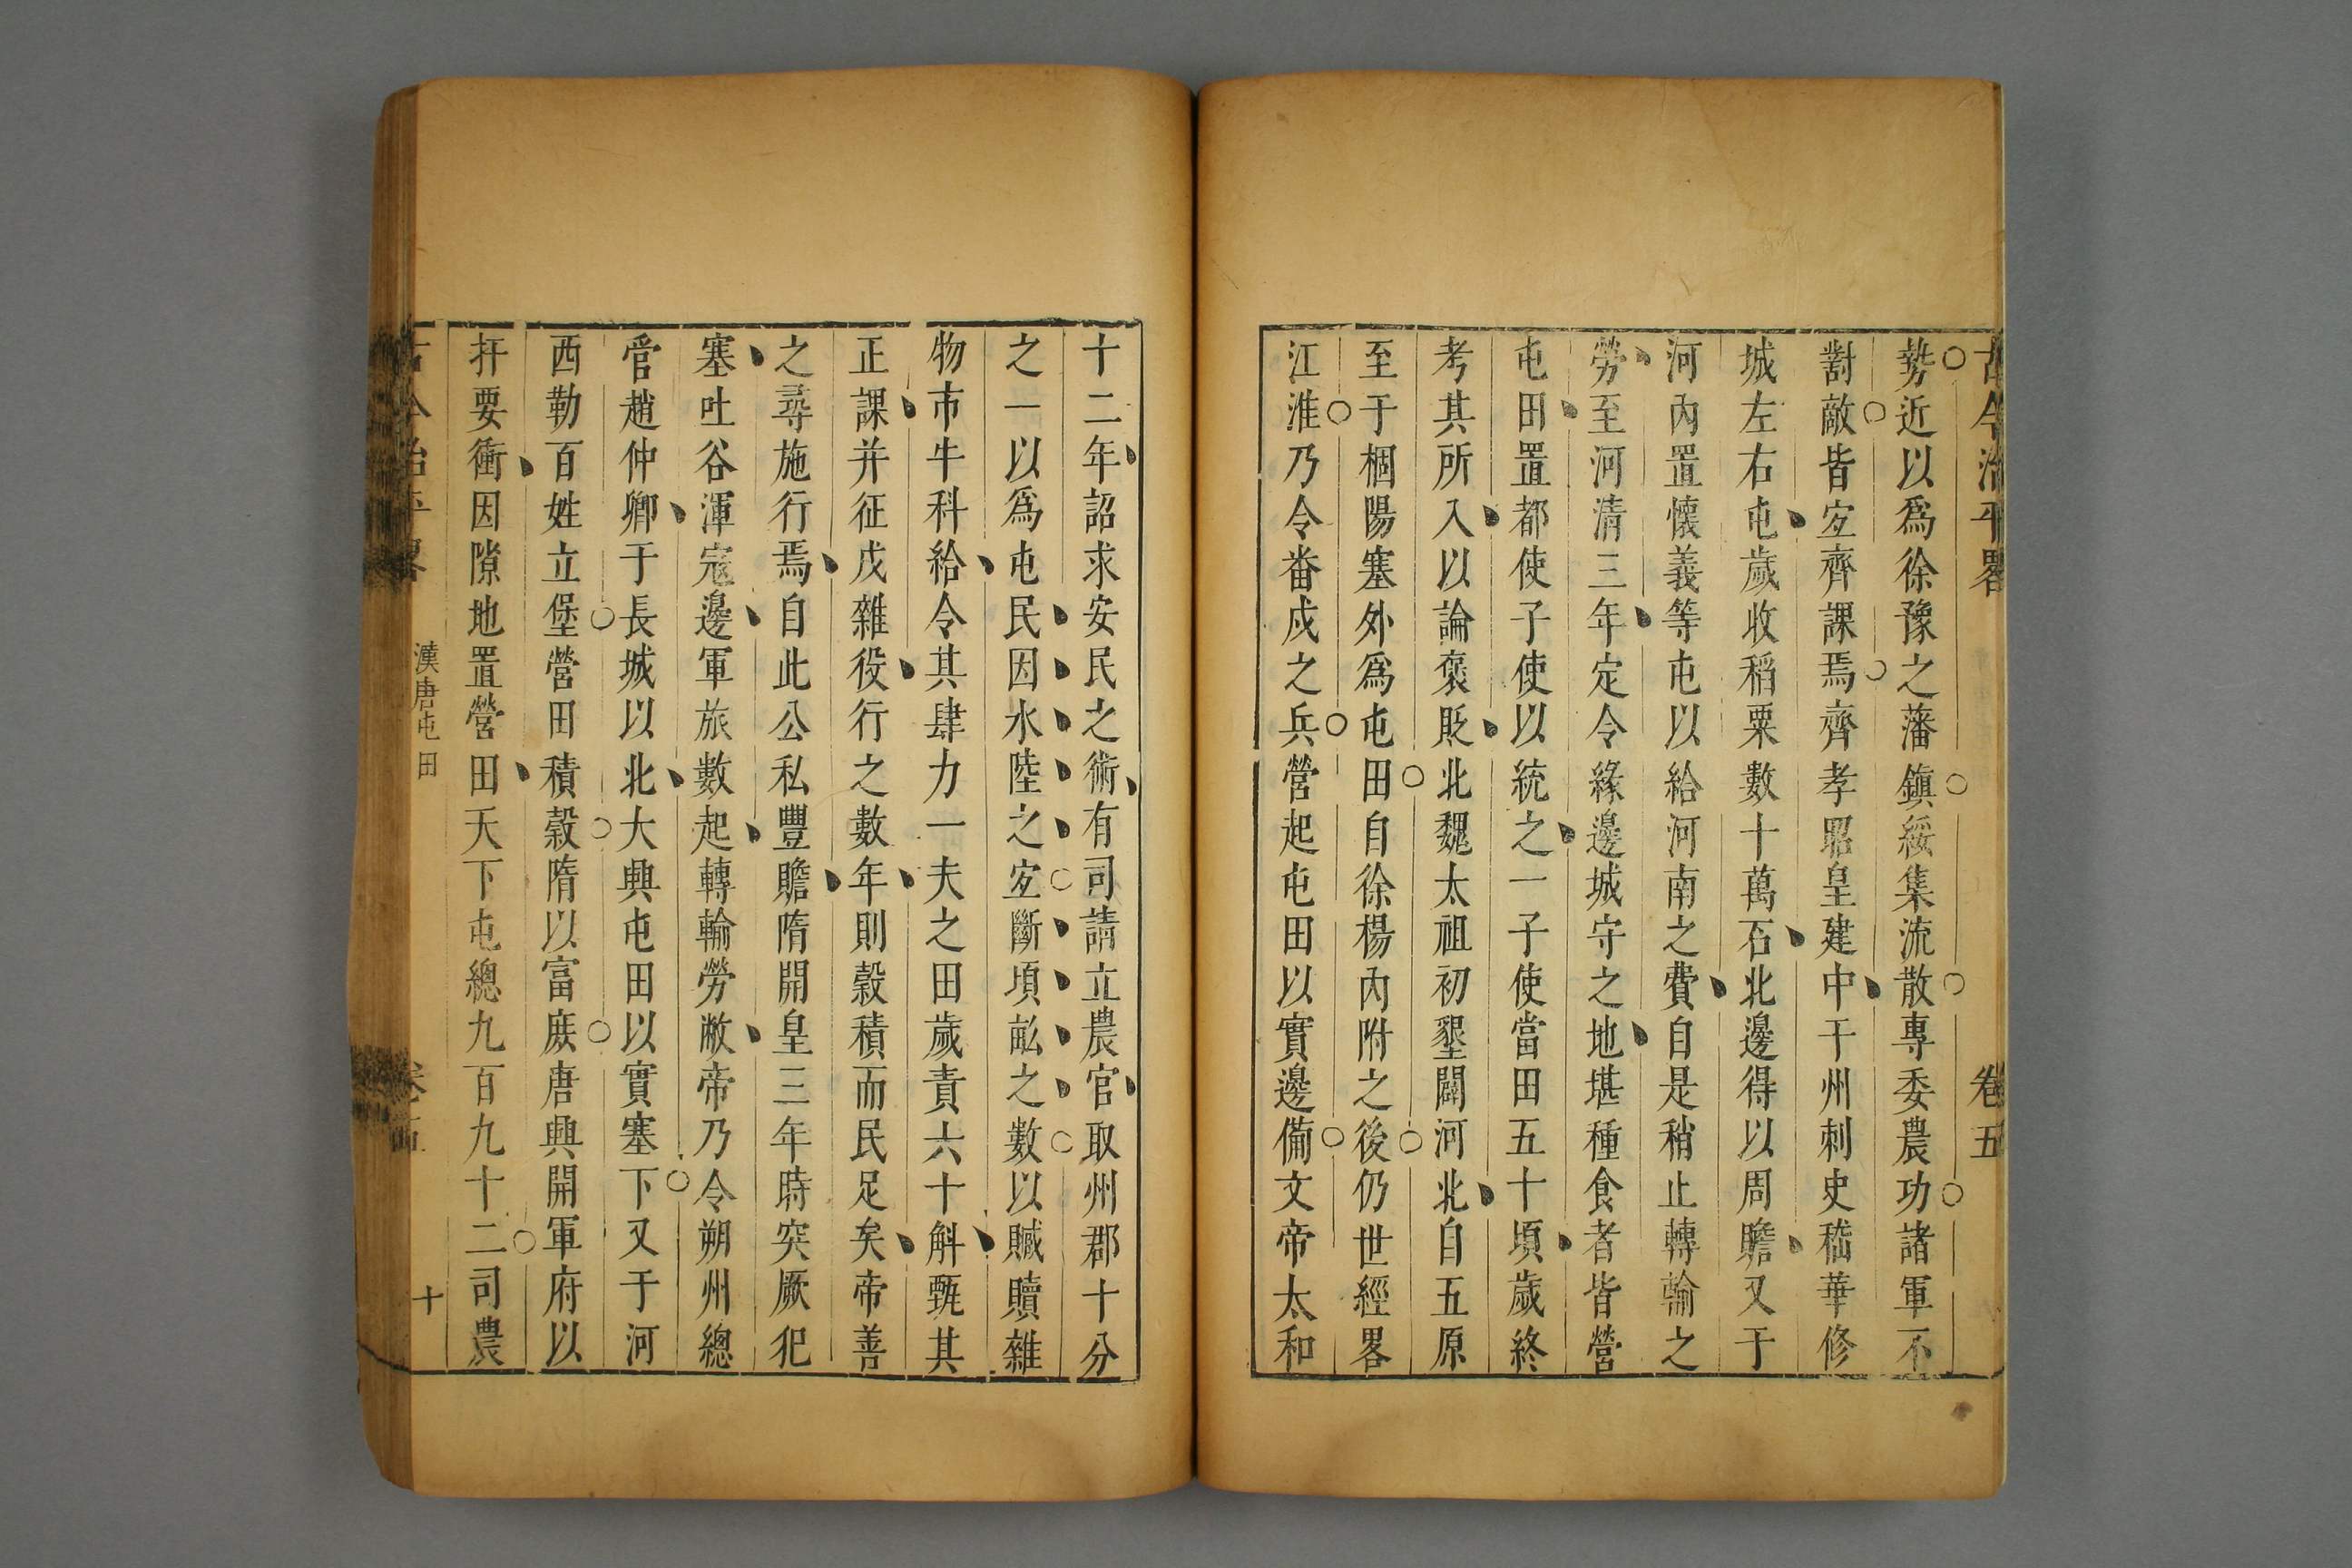 古今治平畧 卷五
勢近以爲徐豫之藩鎮綏集流散專委農功諸軍不
對敵皆宐齊課焉齊孝昭皇建中干州刺史嵇華修
城左右屯歲收稻粟數十萬石北邊得以周贍又于
河內置懷義等屯以給河南之費自是稍止轉輸之
勞至河清三年定令緣邊城守之地堪種食者皆營
屯田置都使子使以統之一子使當田五十頃歲終
考其所入以論褒貶北魏太祖初墾闢河北自五原
至于棝陽塞外爲屯田自徐楊內附之後仍世經畧
江淮乃令畨戍之兵營起屯田以實邊備文帝太和
十二年詔求安民之術有司請立農官取州郡十分
之一以爲屯民因水陸之宐斷頃畝之數以贓贖雜
物市牛科給令其肆力一夫之田歲責六十斛甄其
正課并征戍雜役行之數年則穀積而民足矣帝善
之尋施行焉自此公私豐贍隋開皇三年時突厥犯
塞吐谷渾寇邊軍旅數起轉輸勞敝帝乃令朔州總
管趙仲卿于長城以北大興屯田以實塞下又于河
西勒百姓立堡營田積穀隋以富庶唐興開軍府以
扞要衝因隙地置營田天下屯總九百九十二司農
古今治平畧 漢唐屯田 卷五 十